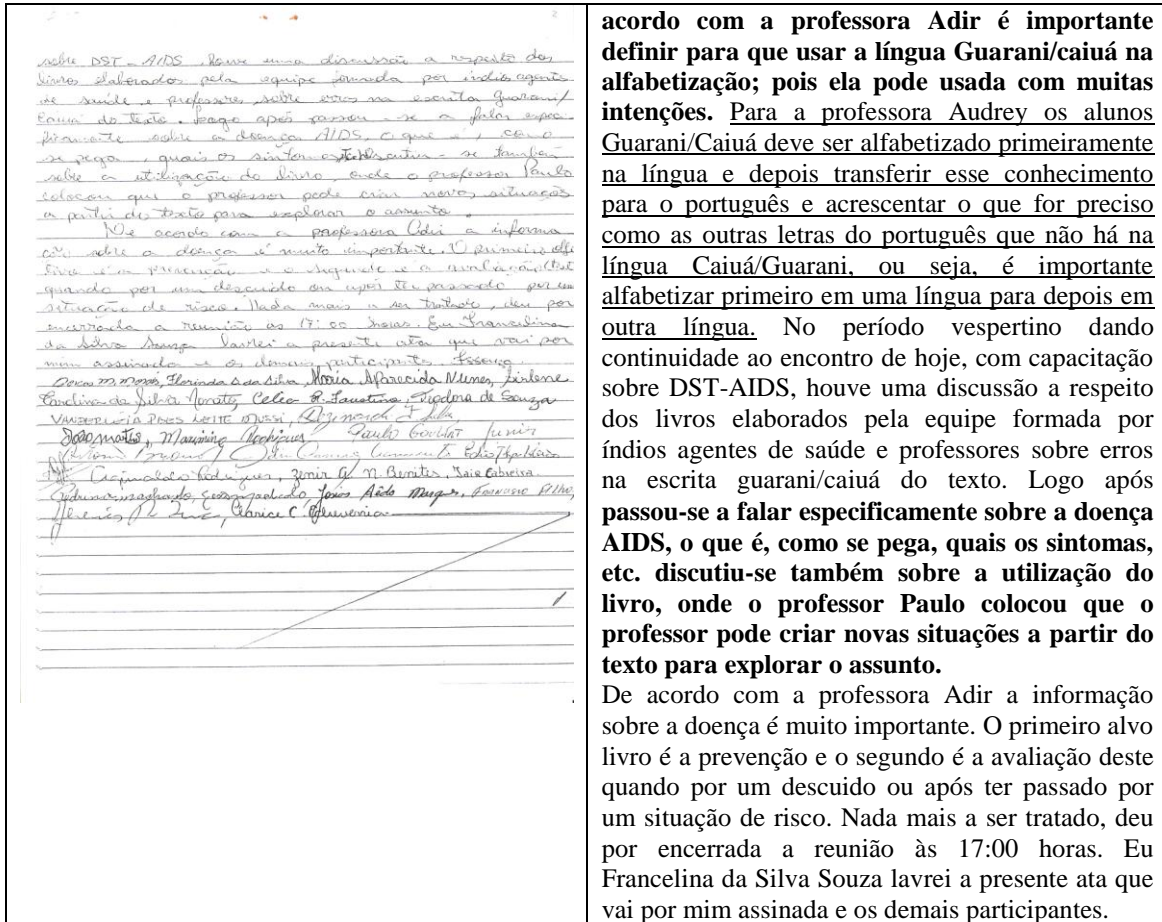 2
sobre DST - AIDS. Houve uma discussão a respeito dos
livros elaborados pela equipe formada por índios agentes
de saúde e professores sobre erros na escrita guarani/
caiuá do texto. Logo após passou-se a falar especi
ficamente sobre a doença AIDS, o que é, como
se pega, quais os sintomas, etc. discutiu-se também
sobre a utilização do livro, onde o professor Paulo
colocou que o professor pode criar novas situações
a partir do texto para explorar o assunto.
De acordo com a professora Adir a informa
ção sobre a doença é muito importante. O primeiro
livro é a prevenção e o segundo é a avaliação
quando por um descuido ou após ter passado por um
situação de risco. Nada mais a ser tratado, deu por
encerrada a reunião às 17:00 horas. Eu Francelina
da Silva Souza lavrei a presente ata que vai por
mim assinada e os demais participantes.
Florinda S. da Silva, Maria Aparecida Nunes,
da Silva Celia R. Faustino, de Souza
PAES LEITE MUSSI,
João Matos, Maximino Rodrigues, Paulo Junir
Rodrigues, Zenir N. Benites, Cabreira
Machado, Aédo Marques,
Clarice C.
acordo com a professora Adir é importante
definir para que usar a língua Guarani/caiuá na
alfabetização; pois ela pode usada com muitas
intenções. Para a professora Audrey os alunos
Guarani/Caiuá deve ser alfabetizado primeiramente
na língua e depois transferir esse conhecimento
para o português e acrescentar o que for preciso
como as outras letras do português que não há na
língua Caiuá/Guarani, ou seja, é importante
alfabetizar primeiro em uma língua para depois em
outra língua. No período vespertino dando
continuidade ao encontro de hoje, com capacitação
sobre DST-AIDS, houve uma discussão a respeito
dos livros elaborados pela equipe formada por
índios agentes de saúde e professores sobre erros
na escrita guarani/caiuá do texto. Logo após
passou-se a falar especificamente sobre a doença
AIDS, o que é, como se pega, quais os sintomas,
etc. discutiu-se também sobre a utilização do
livro, onde o professor Paulo colocou que o
professor pode criar novas situações a partir do
texto para explorar o assunto.
De acordo com a professora Adir a informação
sobre a doença é muito importante. O primeiro alvo
livro é a prevenção e o segundo é a avaliação deste
quando por um descuido ou após ter passado por
um situação de risco. Nada mais a ser tratado, deu
por encerrada a reunião às 17:00 horas. Eu
Francelina da Silva Souza lavrei a presente ata que
vai por mim assinada e os demais participantes.